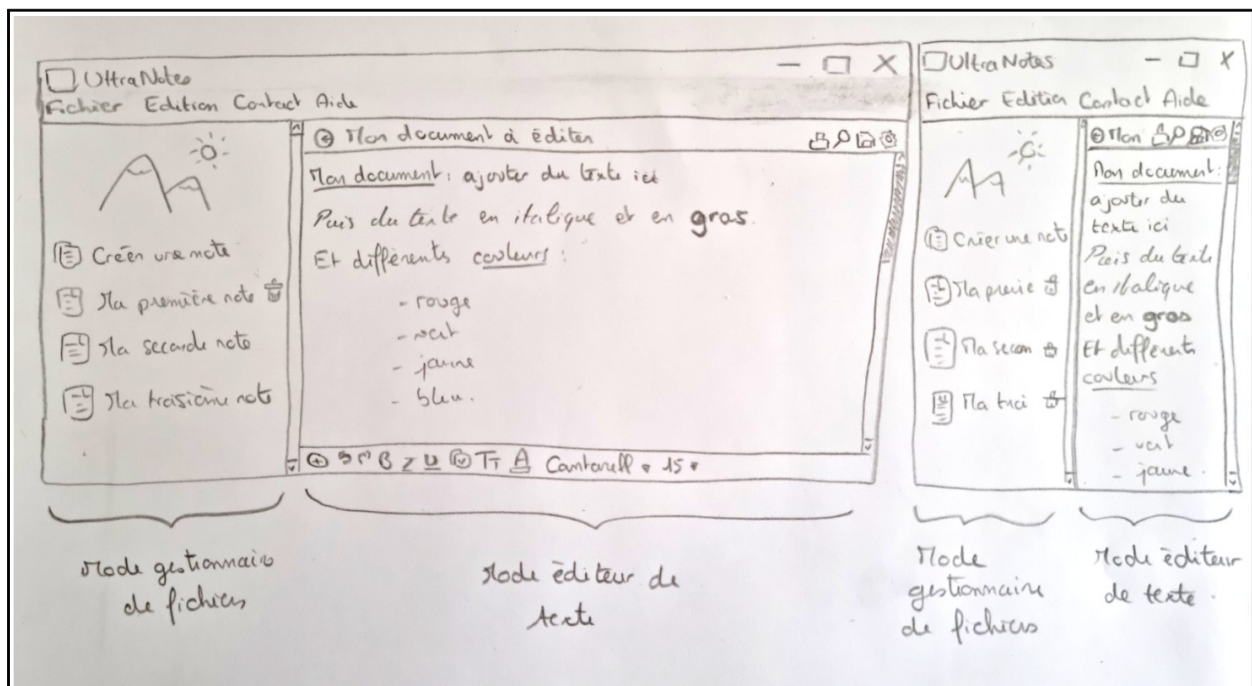 UltraNotes
Fichier Edition Contact Aide
Créer une note
Ma première note
Ma seconde note
Ma troisième note
Mon document à éditer
Mon document : ajouter du texte ici
Puis du texte en italique et en gras.
Et différents couleurs :
- rouge
- vert
- jaune
- bleu.
B I U TT A Cantarell 15
Mode gestionnaire
de fichiers
Mode éditeur de
texte
UltraNotes
Fichier Edition Contact Aide
Créer une note
Ma premie
Ma secon
Ma troi
Mon
Mon document :
ajouter du
texte ici
Puis du texte
en italique
et en gros
Et différents
couleurs
- rouge
- vert
- jaune.
Mode
gestionnaire
de fichiers
Mode éditeur
de texte.